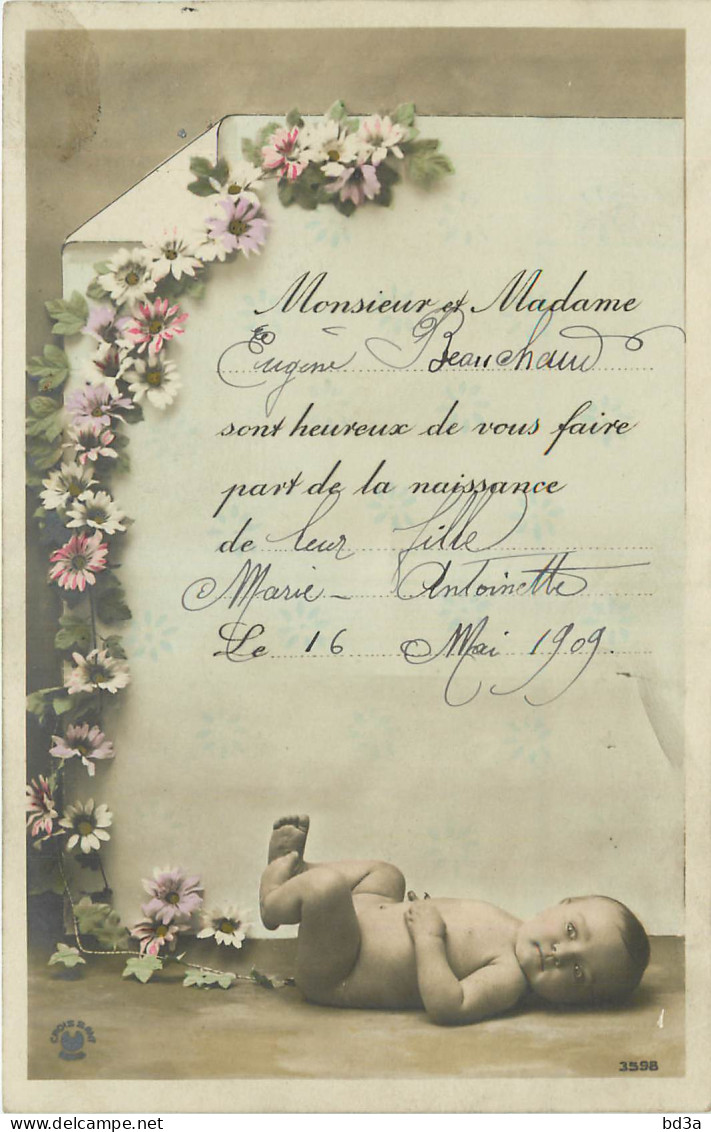 Monsieur et Madame
Eugène Beauchaud
sont heureux de vous faire
part de la naissance
de leur fille
Marie - Antoinette
Le 16 Mai 1909.
CROISSANT
3598
delcampe.net
bd3a